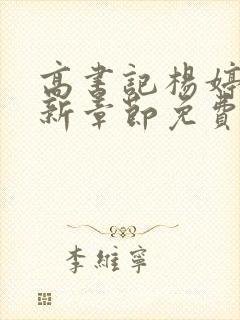 高書記楊婷
新章節免費
李維寧